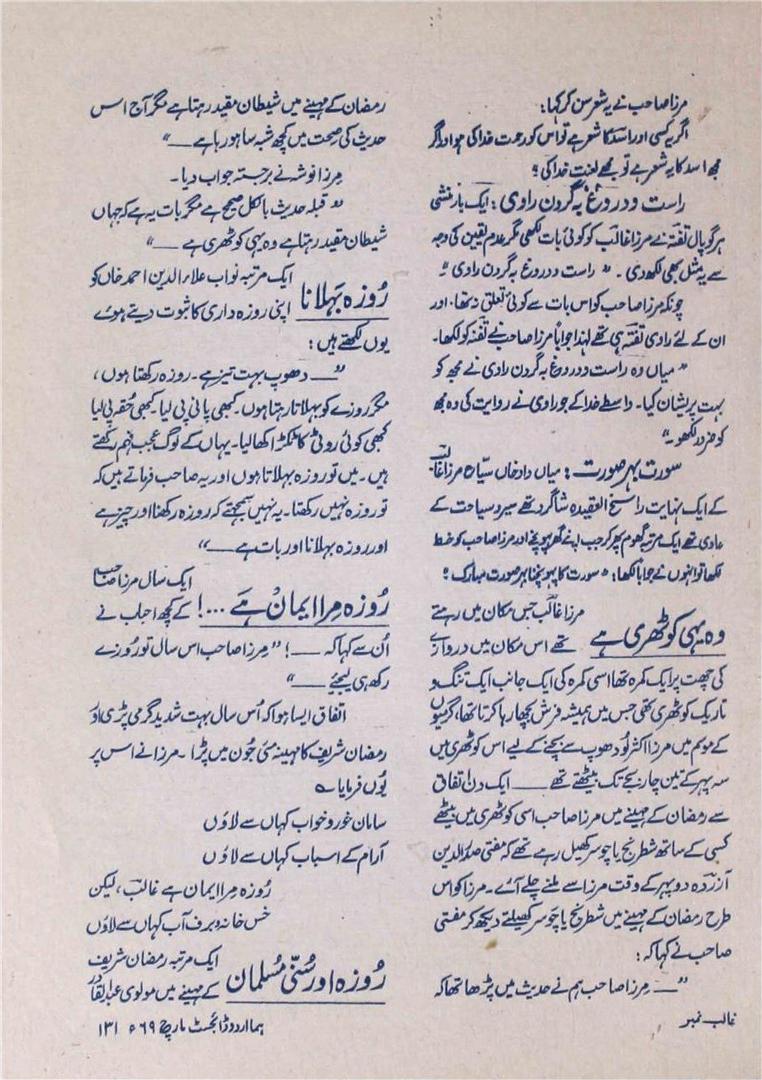 مرزا صاحب نے یہ شعر سن کر کہا:
اگر یہ کسی اور اسدؔ کا شعر ہے تو اس کو رحمت خدا کی ہو اور اگر
مجھ اسد کا یہ شعر ہے تو مجھے لعنت خدا کی؟
راست و دروغ بہ گردن راوی : ایک بار منشی
ہرگوپال تفتہؔ نے مرزا غالبؔ کو کوئی بات لکھی مگر عدم یقین کی وجہ
سے یہ مثل بھی لکھ دی۔ "راست و دروغ بہ گردن راوی"۔
چونکہ مرزا صاحب کو اس بات سے کوئی تعلق نہ تھا۔ اور
ان کے لئے راوی تفتہؔ ہی تھے لہذا جواباً مرزا صاحب نے تفتہؔ کو لکھا۔
"میاں وہ راست و دروغ بہ گردن راوی نے مجھ کو
بہت پریشان کیا۔ واسطے خدا کے جو راوی نے روایت کی وہ مجھ
کو ضرور لکھو۔"
سورت بہر صورت : میاں داد خاں سیّاح مرزا غالب
کے ایک نہایت راسخ العقیدہ شاگرد تھے سیر و سیاحت کے
عادی تھے ایک مرتبہ گھوم پھر کر جب اپنے گھر پہونچے اور مرزا صاحب کو خط
لکھا تو انہوں نے جواباً لکھا: "سورت کا پہونچنا بہر صورت مبارک"؛
وہ یہی کوٹھری ہے
مرزا غالبؔ جس مکان میں رہتے
تھے اس مکان میں دروازے
کی چھت پر ایک کمرہ تھا اسی کمرہ کی ایک جانب ایک تنگ و
تاریک کوٹھری تھی جس میں ہمیشہ فرش بچھا رہا کرتا تھا، گرمیوں
کے موسم میں مرزا اکثر لُو دھوپ سے بچنے کے لیے اس کوٹھری میں
سہ پہر کے تین چار بجے تک بیٹھتے تھے ــــ ایک دن اتفاق
سے رمضان کے مہینے میں مرزا صاحب اسی کوٹھری میں بیٹھے
کسی کے ساتھ شطرنج یا چوسر کھیل رہے تھے کہ مفتی صدرالدین
آزردہ دوپہر کے وقت مرزا سے ملنے چلے آئے۔ مرزا کو اس
طرح رمضان کے مہینے میں شطرنج یا چوسر کھیلتے دیکھ کر مفتی
صاحب نے کہا کہ:
"ــــ مرزا صاحب ہم نے حدیث میں پڑھا تھا کہ
رمضان کے مہینے میں شیطان مقید رہتا ہے مگر آج اس
حدیث کی صحت میں کچھ شبہ سا ہو رہا ہے ــــ"
مرزا نوشہ نے برجستہ جواب دیا۔
"قبلہ حدیث بالکل صحیح ہے مگر بات یہ ہے کہ جہاں
شیطان مقید رہتا ہے وہ یہی کوٹھری ہے ــــ"
روزہ بہلانا
ایک مرتبہ نواب علاء الدین احمد خاں کو
اپنی روزہ داری کا ثبوت دیتے ہوئے
یوں لکھتے ہیں :
"ــــ دھوپ بہت تیز ہے۔ روزہ رکھتا ہوں،
مگر روزے کو بہلاتا رہتا ہوں۔ کبھی پانی پی لیا۔ کبھی حُقہ پی لیا
کبھی کوئی روٹی کا ٹکڑا کھا لیا۔ یہاں کے لوگ عجب فہم رکھتے
ہیں۔ میں تو روزہ بہلاتا ہوں اور یہ صاحب فرماتے ہیں کہ
تو روزہ نہیں رکھتا۔ یہ نہیں سمجھتے کہ روزہ رکھنا اور چیز ہے
اور روزہ بہلانا اور بات ہے ــــ"
روزہ مرا ایمان ہے ...!
ایک سال مرزا صاحب
کے کچھ احباب نے
اُن سے کہا کہ ــــ ! "مرزا صاحب اس سال تو روزے
رکھ ہی لیجئے ــــ"
اتفاق ایسا ہوا کہ اُس سال بہت شدید گرمی پڑی اور
رمضان شریف کا مہینہ مئی جُون میں پڑا۔ مرزا نے اس پر
یُوں فرمایا ؎
سامان خور و خواب کہاں سے لاؤں
آرام کے اسباب کہاں سے لاؤں
روزہ مرا ایمان ہے غالبؔ، لیکن
خس خانہ و برف آب کہاں سے لاؤں
روزہ اور سُنّی مُسلمان
ایک مرتبہ رمضان شریف
کے مہینے میں مولوی عبدالقادر
غالب نمبر
ہما اردو ڈائجسٹ مارچ ۶۹ء ۱۳۱